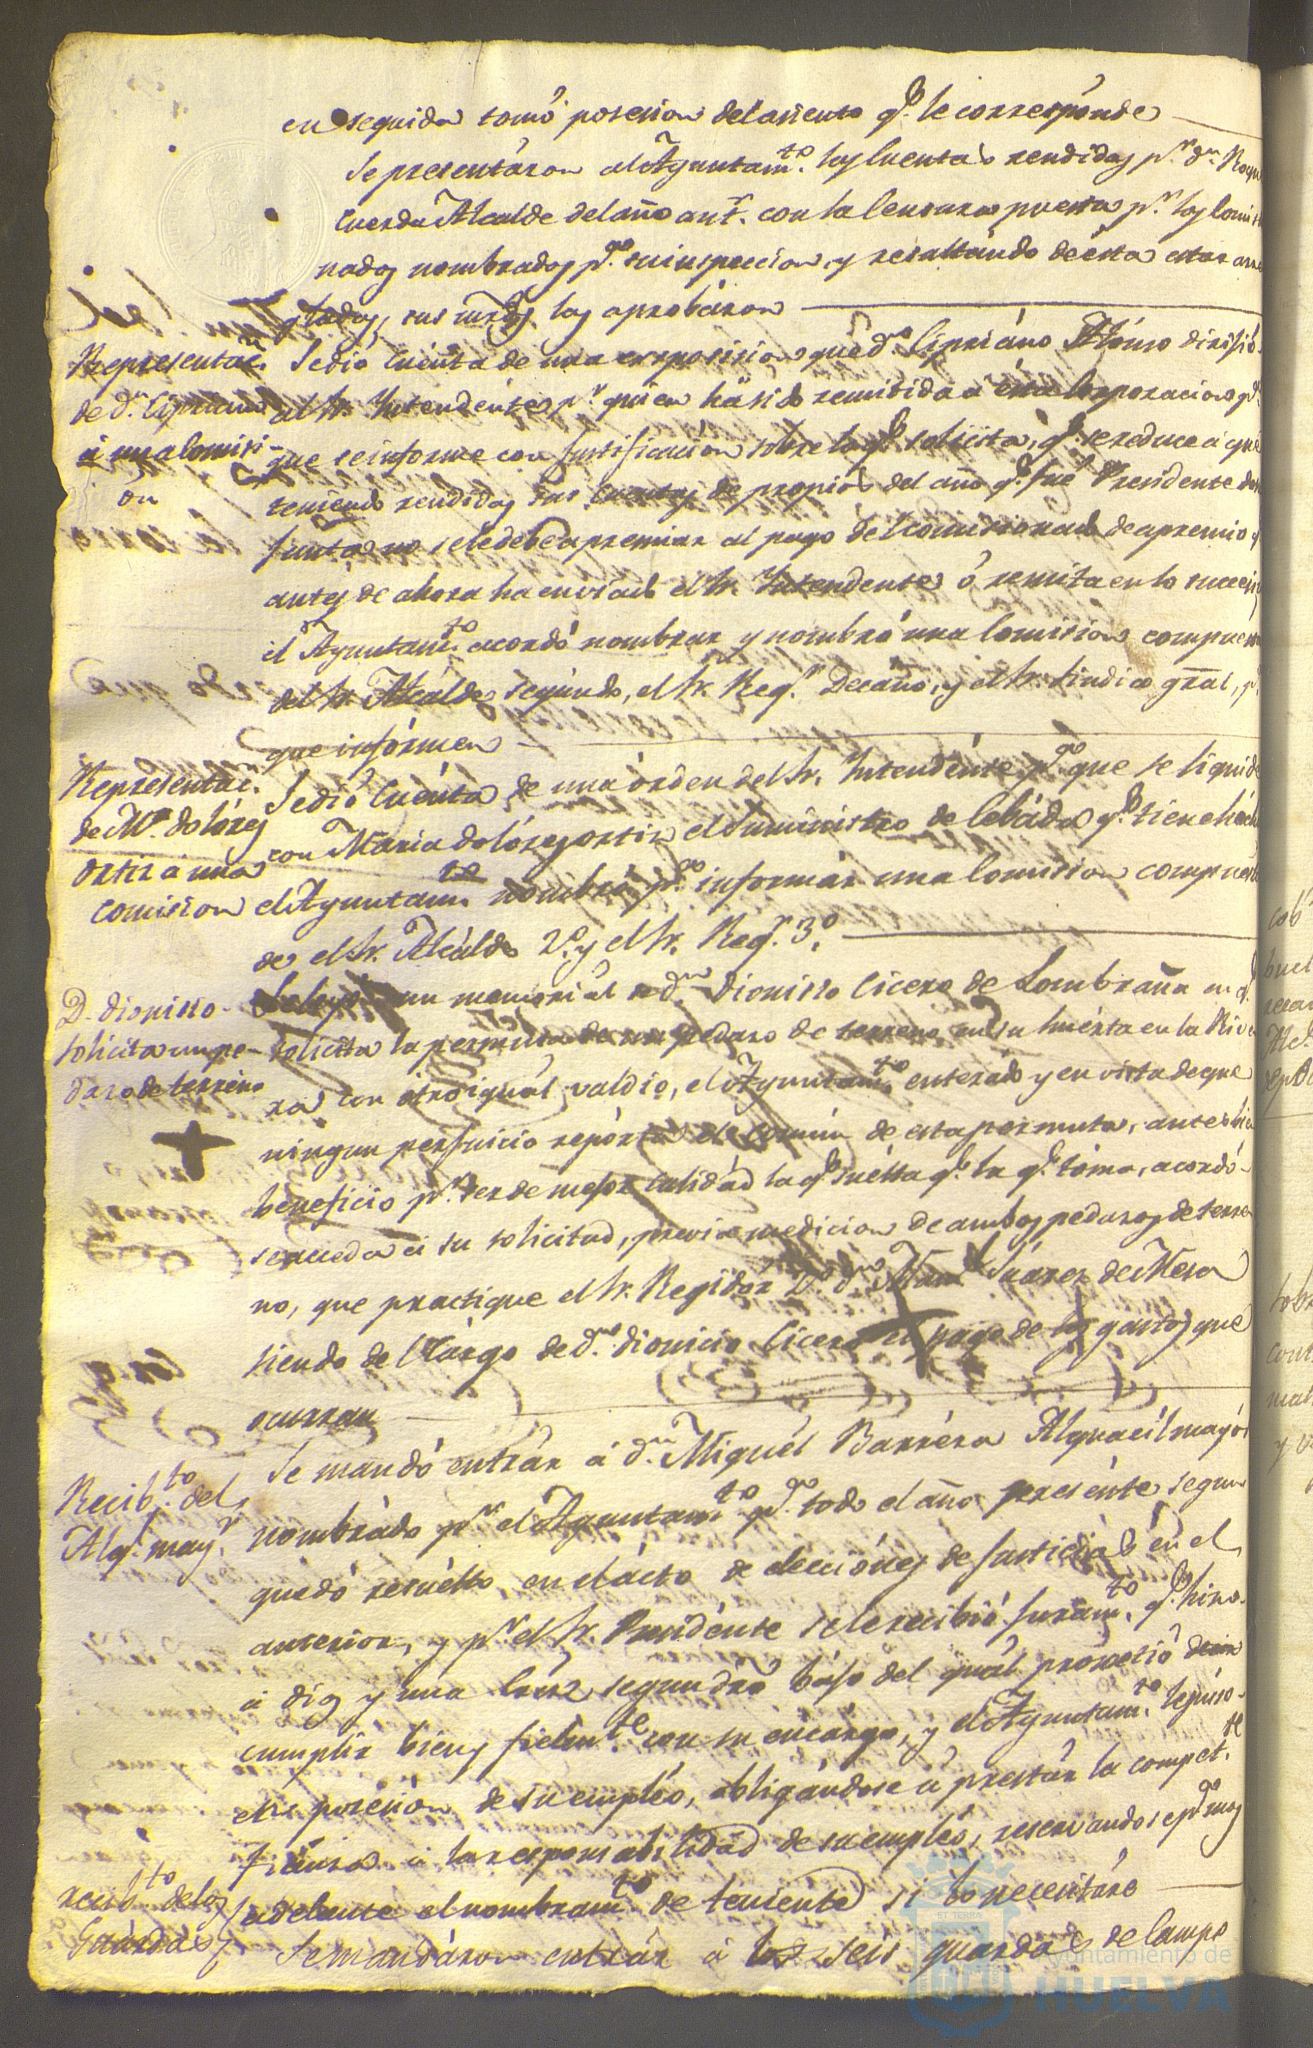 en seguida tomó posesion del asiento qe. le corresponde
Se presentáron al Ayuntamto. las Cuentas rendidas pr. dn. Roqu
Cuerda Alcalde del año antr. con la Censura puesta pr. los Comisio
nados nombrados pa. su inspeccion, y resultándo de ésta estar arre
gladas, sus mrds. las aprobáron
Representacn.
de dn. Cipriano
á una Comisi-
ón
Se dió Cuénta de una exposision que dn. Cipriáno Alónso dirijió
al Sr. Intendénte pr. quien há sido remitida a ésta Corporacion pa.
que se informe con justificacion sobre lo qe. solicita, qe. se reduce á que
teniendo rendidas sus Cuentas de propiós del año qe. fué Presidente de la
Junta no se le debe apremiar al pago del comisionado de apremio q
antes de ahora ha enviado el Sr. Intendente ó remita en lo succesi
el Ayuntamto. acordó nombrar y nombró una Comision compues
del Sr. Alcálde segúndo, el Sr. Regr. Decáno, y el Sr. Sindico gral, pa.
que infórmen
Representacn.
de Ma. dolóres
Ortiz á una
comision
Se dió Cuénta de una órden del Sr. Intendénte pa. que se liquide
con María dolóres ortiz el suministro de Cebáda qe. tiene hécho
el Ayuntamto. nombró pa. informár una Comision compuésta
de el Sr. Alcálde 2o. y el Sr. Regr. 3o.
D. dionisio
solicita un pe-
dazo de terreno
un memoriál de dn. Dionisio Cicero de Lombraña en qe.
solicita la permuta de un pedazo de terreno en su huérta en la Rive
ra con otro iguál valdio, el Ayuntamto. enterádo y en vista de que
ningun perjuicio repórta el comun de esta permuta, antes bien
beneficio pr. ser de mejor calidád la qe. suélta qe. la qe. tóma, acordó
se acceda á su solicitud, previa medicion de ambos pedazos de terre
no, que practique el Sr. Regidór 2o. dn. Manl. Suárez de Mesa
siendo de Cárgo de dn. dionicio Cicero el pago de los gastos que
ocurran
Recibto. del
Algl. mayr.
Se mandó entrár á dn. Miguél Barréra Alguacil mayór
nombrádo pr. el Ayuntamto. pa. todo el año presénte segun
quedó resuélto en el ácto de elecciónes de Justicia en el
anterior, y pr. el Sr. Presidénte se le recibió juramto. qe. hizo
á dios y una Crúz segun dro. bájo del quál prometió
cumplir bien y fielmte. con su encargo, y el Ayuntamto. le puso
en posesión de su empléo, obligándose á prestár la compete.
fianza á la responsabilidad de su empléo, reservandose pa. mas
adelante el nombramto. de teniente si lo necesitáre
recibto. de los
Guárdas
Se mandáron entrár á los seis guardas de Campo
ET TERRA
Ayuntamiento de
HUELVA